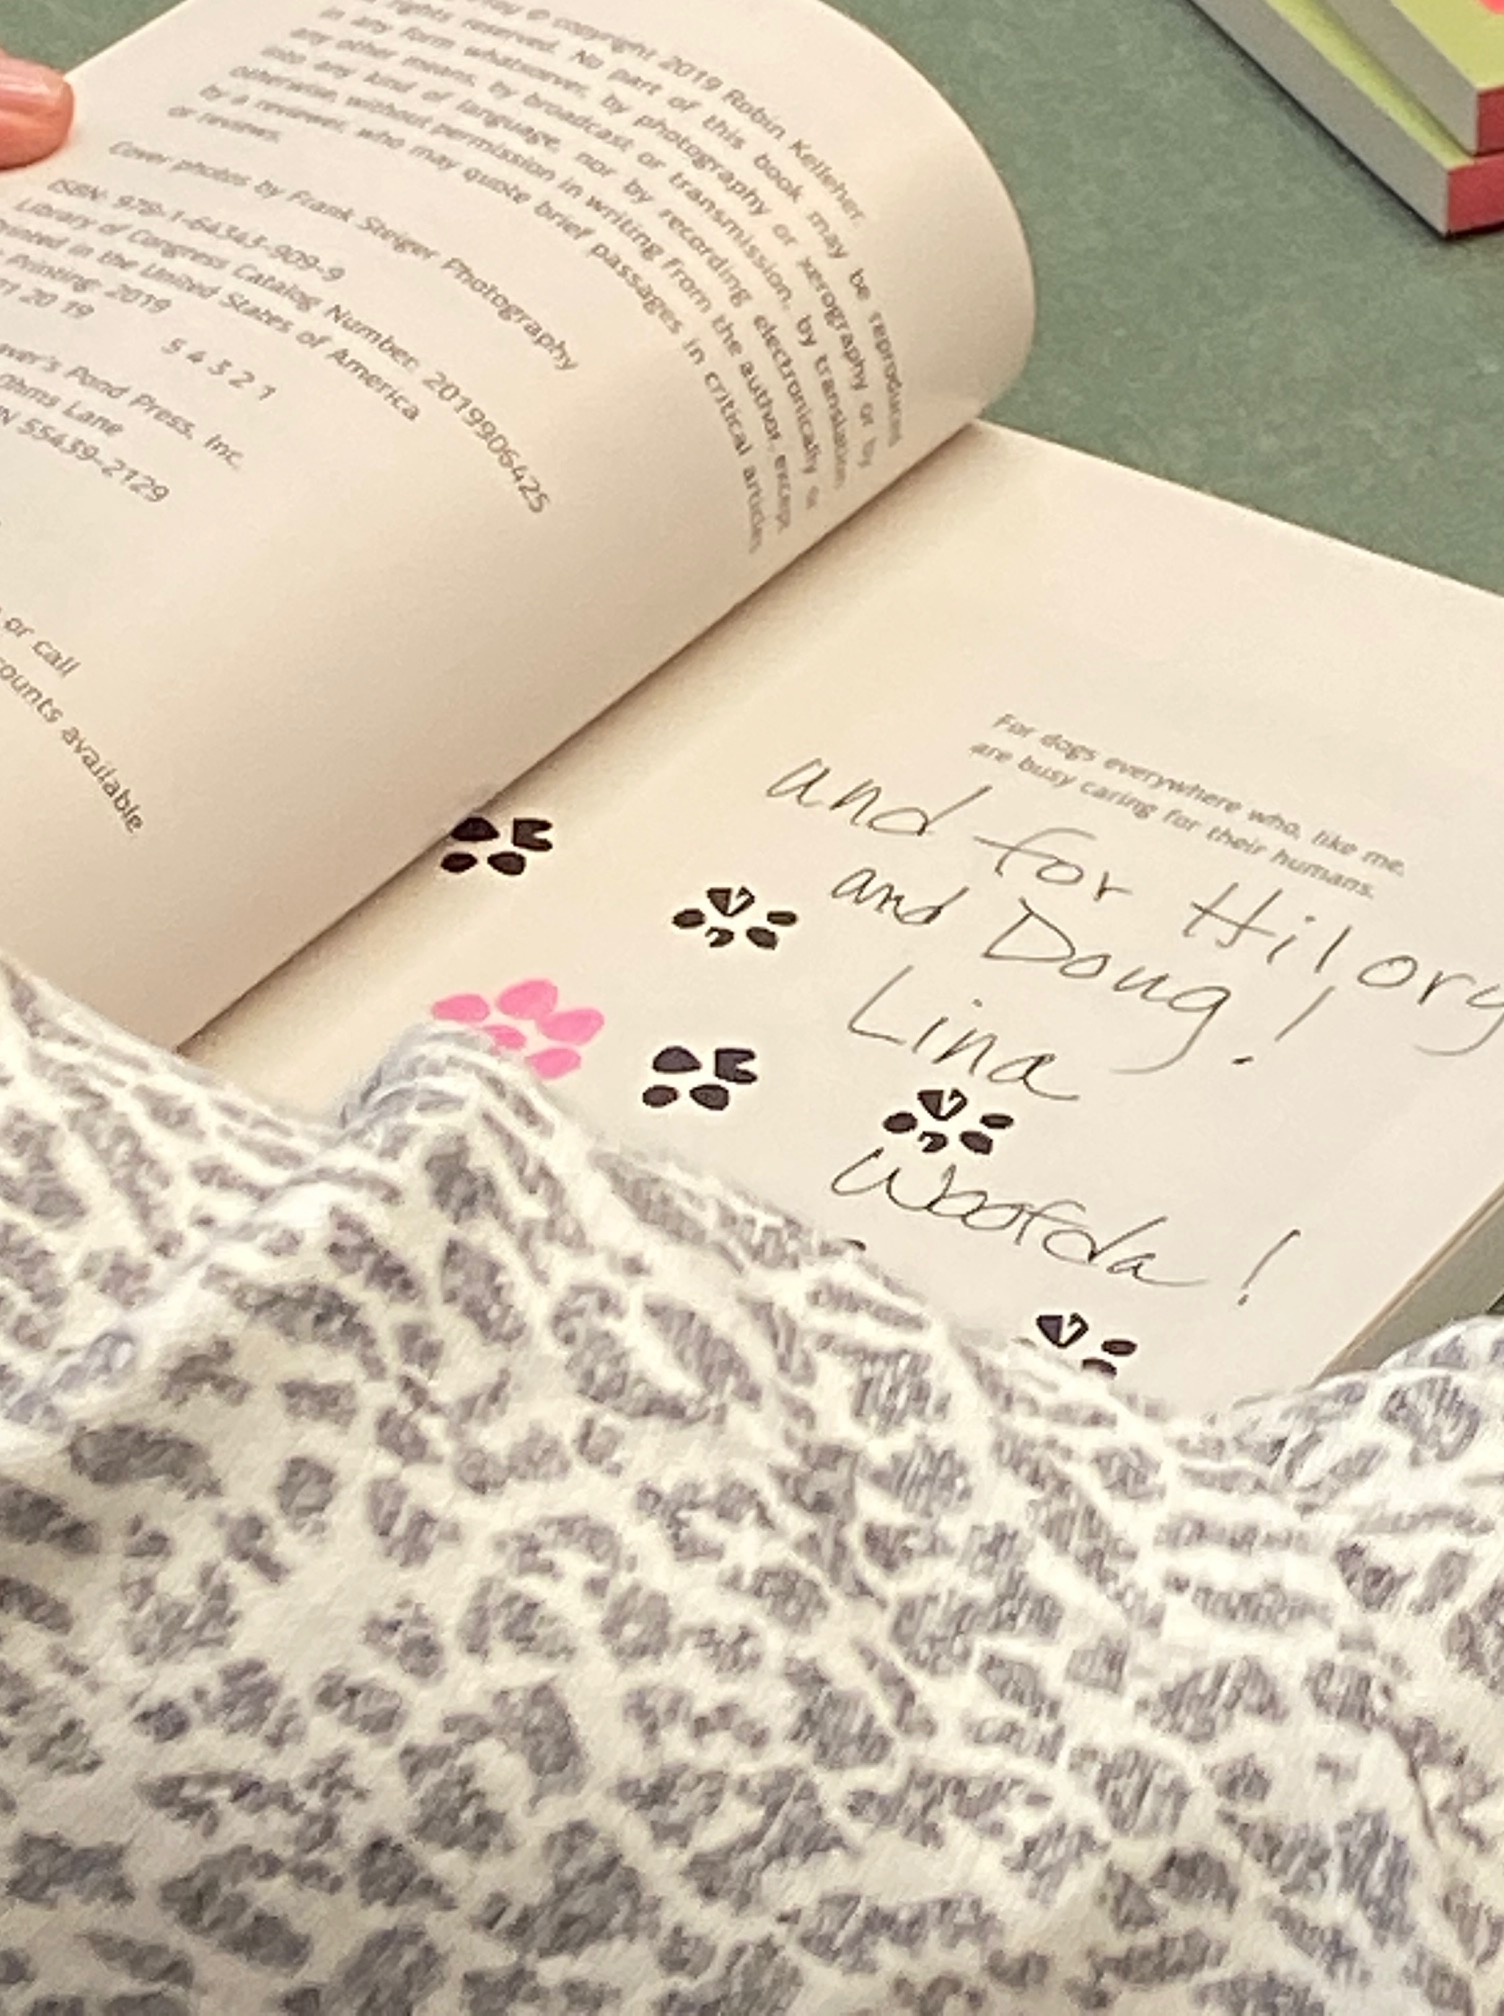 © copyright 2019 Robin Kelleher.
rights reserved. No part of this book may be reproduced
in any form whatsoever, by photography or xerography or by
any other means, by broadcast or transmission, by translation
into any kind of language, nor by recording electronically or
otherwise, without permission in writing from the author, except
by a reviewer, who may quote brief passages in critical articles
or reviews.
Cover photos by Frank Steiger Photography
ISBN: 978-1-64343-909-9
Library of Congress Catalog Number: 2019906425
in the United States of America
Printing: 2019
20 19
5 4 3 2 1
Pond Press, Inc.
Ohms Lane
55439-2129
or call
available
For dogs everywhere who, like me,
are busy caring for their humans.
and for Hilory
and Doug!
Lina
Woofda!